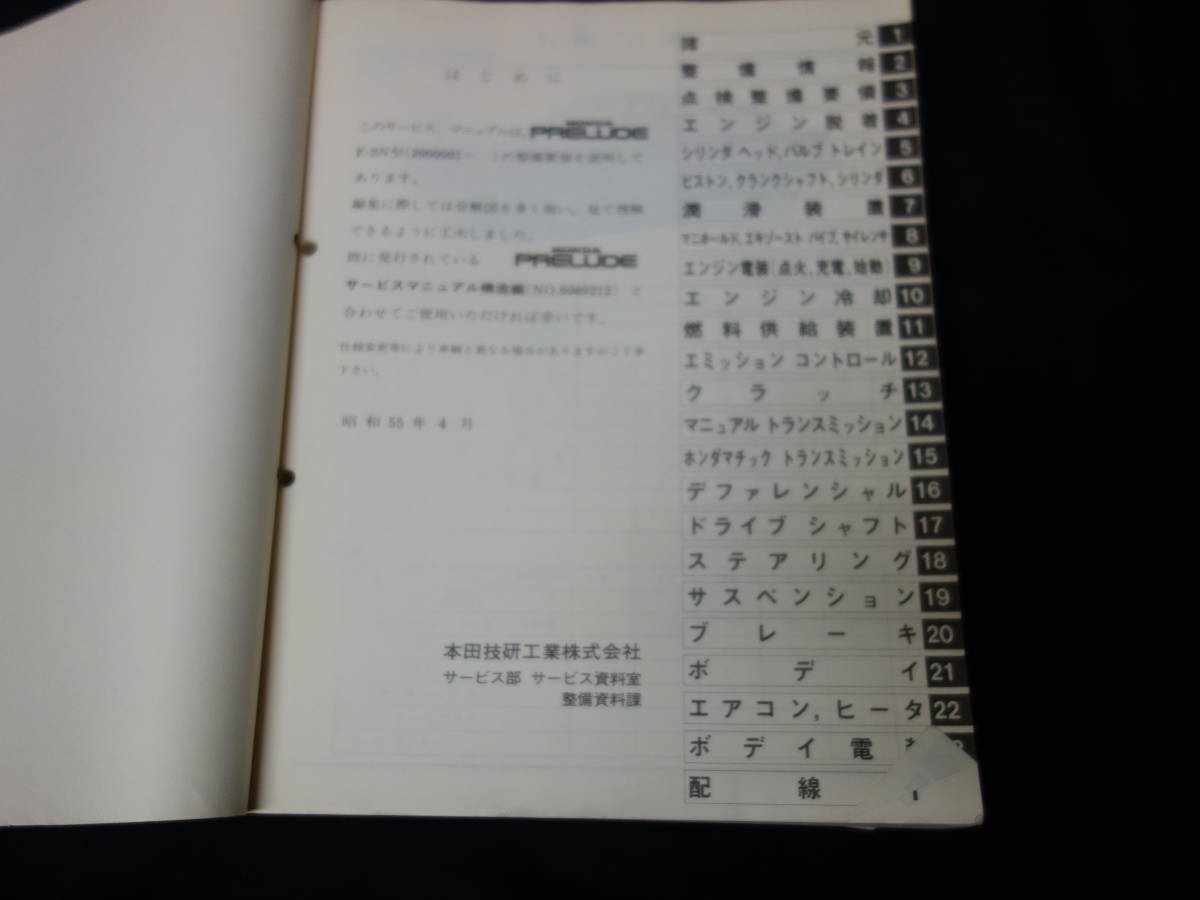 はじめに
このサービス マニュアルは、HONDA PRELUDE
E-SN型(2000001～ )の整備要領を説明して
あります。
編集に際しては分解図を多く用い、見て理解
できるように工夫しました。
既に発行されている HONDA PRELUDE
サービスマニュアル構造編(NO.6069212)と
合わせてご使用いただければ幸いです。
仕様変更等により車輌と異なる場合がありますがご了承
下さい。
昭和55年4月
本田技研工業株式会社
サービス部 サービス資料室
整備資料課
諸元 1
整備情報 2
点検整備要領 3
エンジン脱着 4
シリンダ ヘッド,バルブ トレイン 5
ピストン,クランクシャフト,シリンダ 6
潤滑装置 7
マニホールド,エキゾースト パイプ,サイレンサ 8
エンジン電装(点火,充電,始動) 9
エンジン冷却 10
燃料供給装置 11
エミッション コントロール 12
クラッチ 13
マニュアル トランスミッション 14
ホンダマチック トランスミッション 15
デファレンシャル 16
ドライブ シャフト 17
ステアリング 18
サスペンション 19
ブレーキ 20
ボデイ 21
エアコン,ヒータ 22
ボデイ電
配線